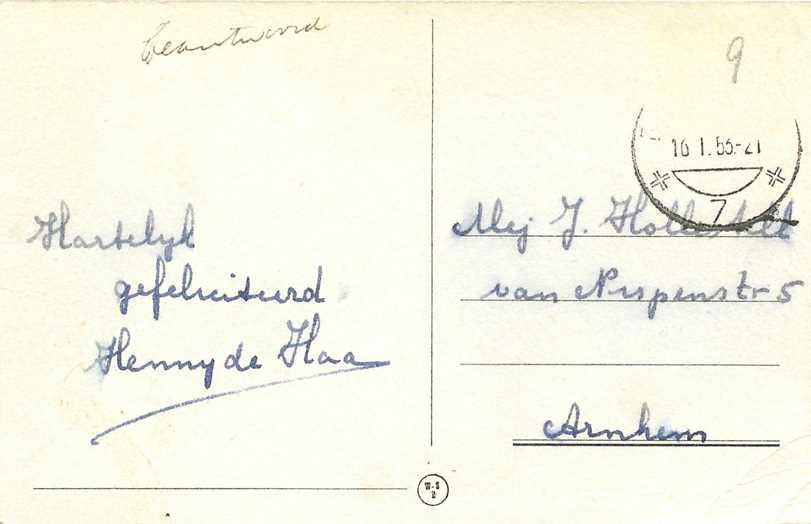 beantwoord
9
16 1.55.-21
7
Hartelijk
gefeliciteerd
Henny de Haa
Mej J.
van Nispenstr 5
Arnhem
W.S
B